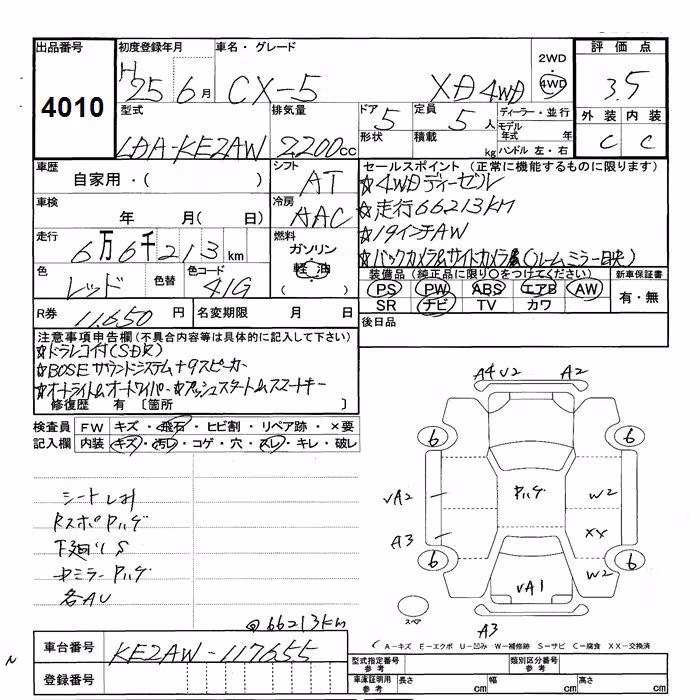 出品番号 初度登録年月 車名・グレード 2WD 評価点
4010 H25 6月 CX-5 XD 4WD 4WD 3.5
型式 排気量 ドア 5 定員 5人 ディーラー・並行 外装 内装
LDA-KE2AW 2200cc 形状 積載 kg モデル年式 年 C C
ハンドル 左・右
車歴 シフト セールスポイント (正常に機能するものに限ります)
自家用・( ) AT ☆4WDディーゼル
車検 冷房 ☆走行66213KM
年 月( 日) AAC ☆19インチAW
走行 燃料 ☆バックカメラ&サイドカメラ
6万6千213km ガソリン
色 色替 色コード 軽油 装備品 (純正品に限り○をつけてください) 新車保証書
レッド 41G PS PW ABS エアB AW 有・無
R券 11,650円 名変期限 月 日 SR ナビ TV カワ
後日品
注意事項申告欄(不具合内容等は具体的に記入して下さい)
☆ドラレコ付(SDR)
☆BOSEサウンドシステム+9スピーカー
☆オートライト&オートワイパー ☆プッシュスタート&スマートキー
修復歴 有 〔箇所 〕
検査員 FW キズ・飛石・ヒビ割・リペア跡・×要
記入欄 内装 キズ・汚レ・コゲ・穴・スレ・キレ・破レ
A4U2 A2
6 6
RスポPハゲ
下廻り S
PハゲW2
A3 XX
各AU
6 6
W2
A3
スペア
@66213km
A-キズ E-エクボ U-凹み W-補修跡 S-サビ C-腐食 XX-交換済
車台番号 KE2AW-117655
登録番号
型式指定番号 参考 類別区分番号 参考
車庫証明用 参考 長さ cm 幅 cm 高さ cm